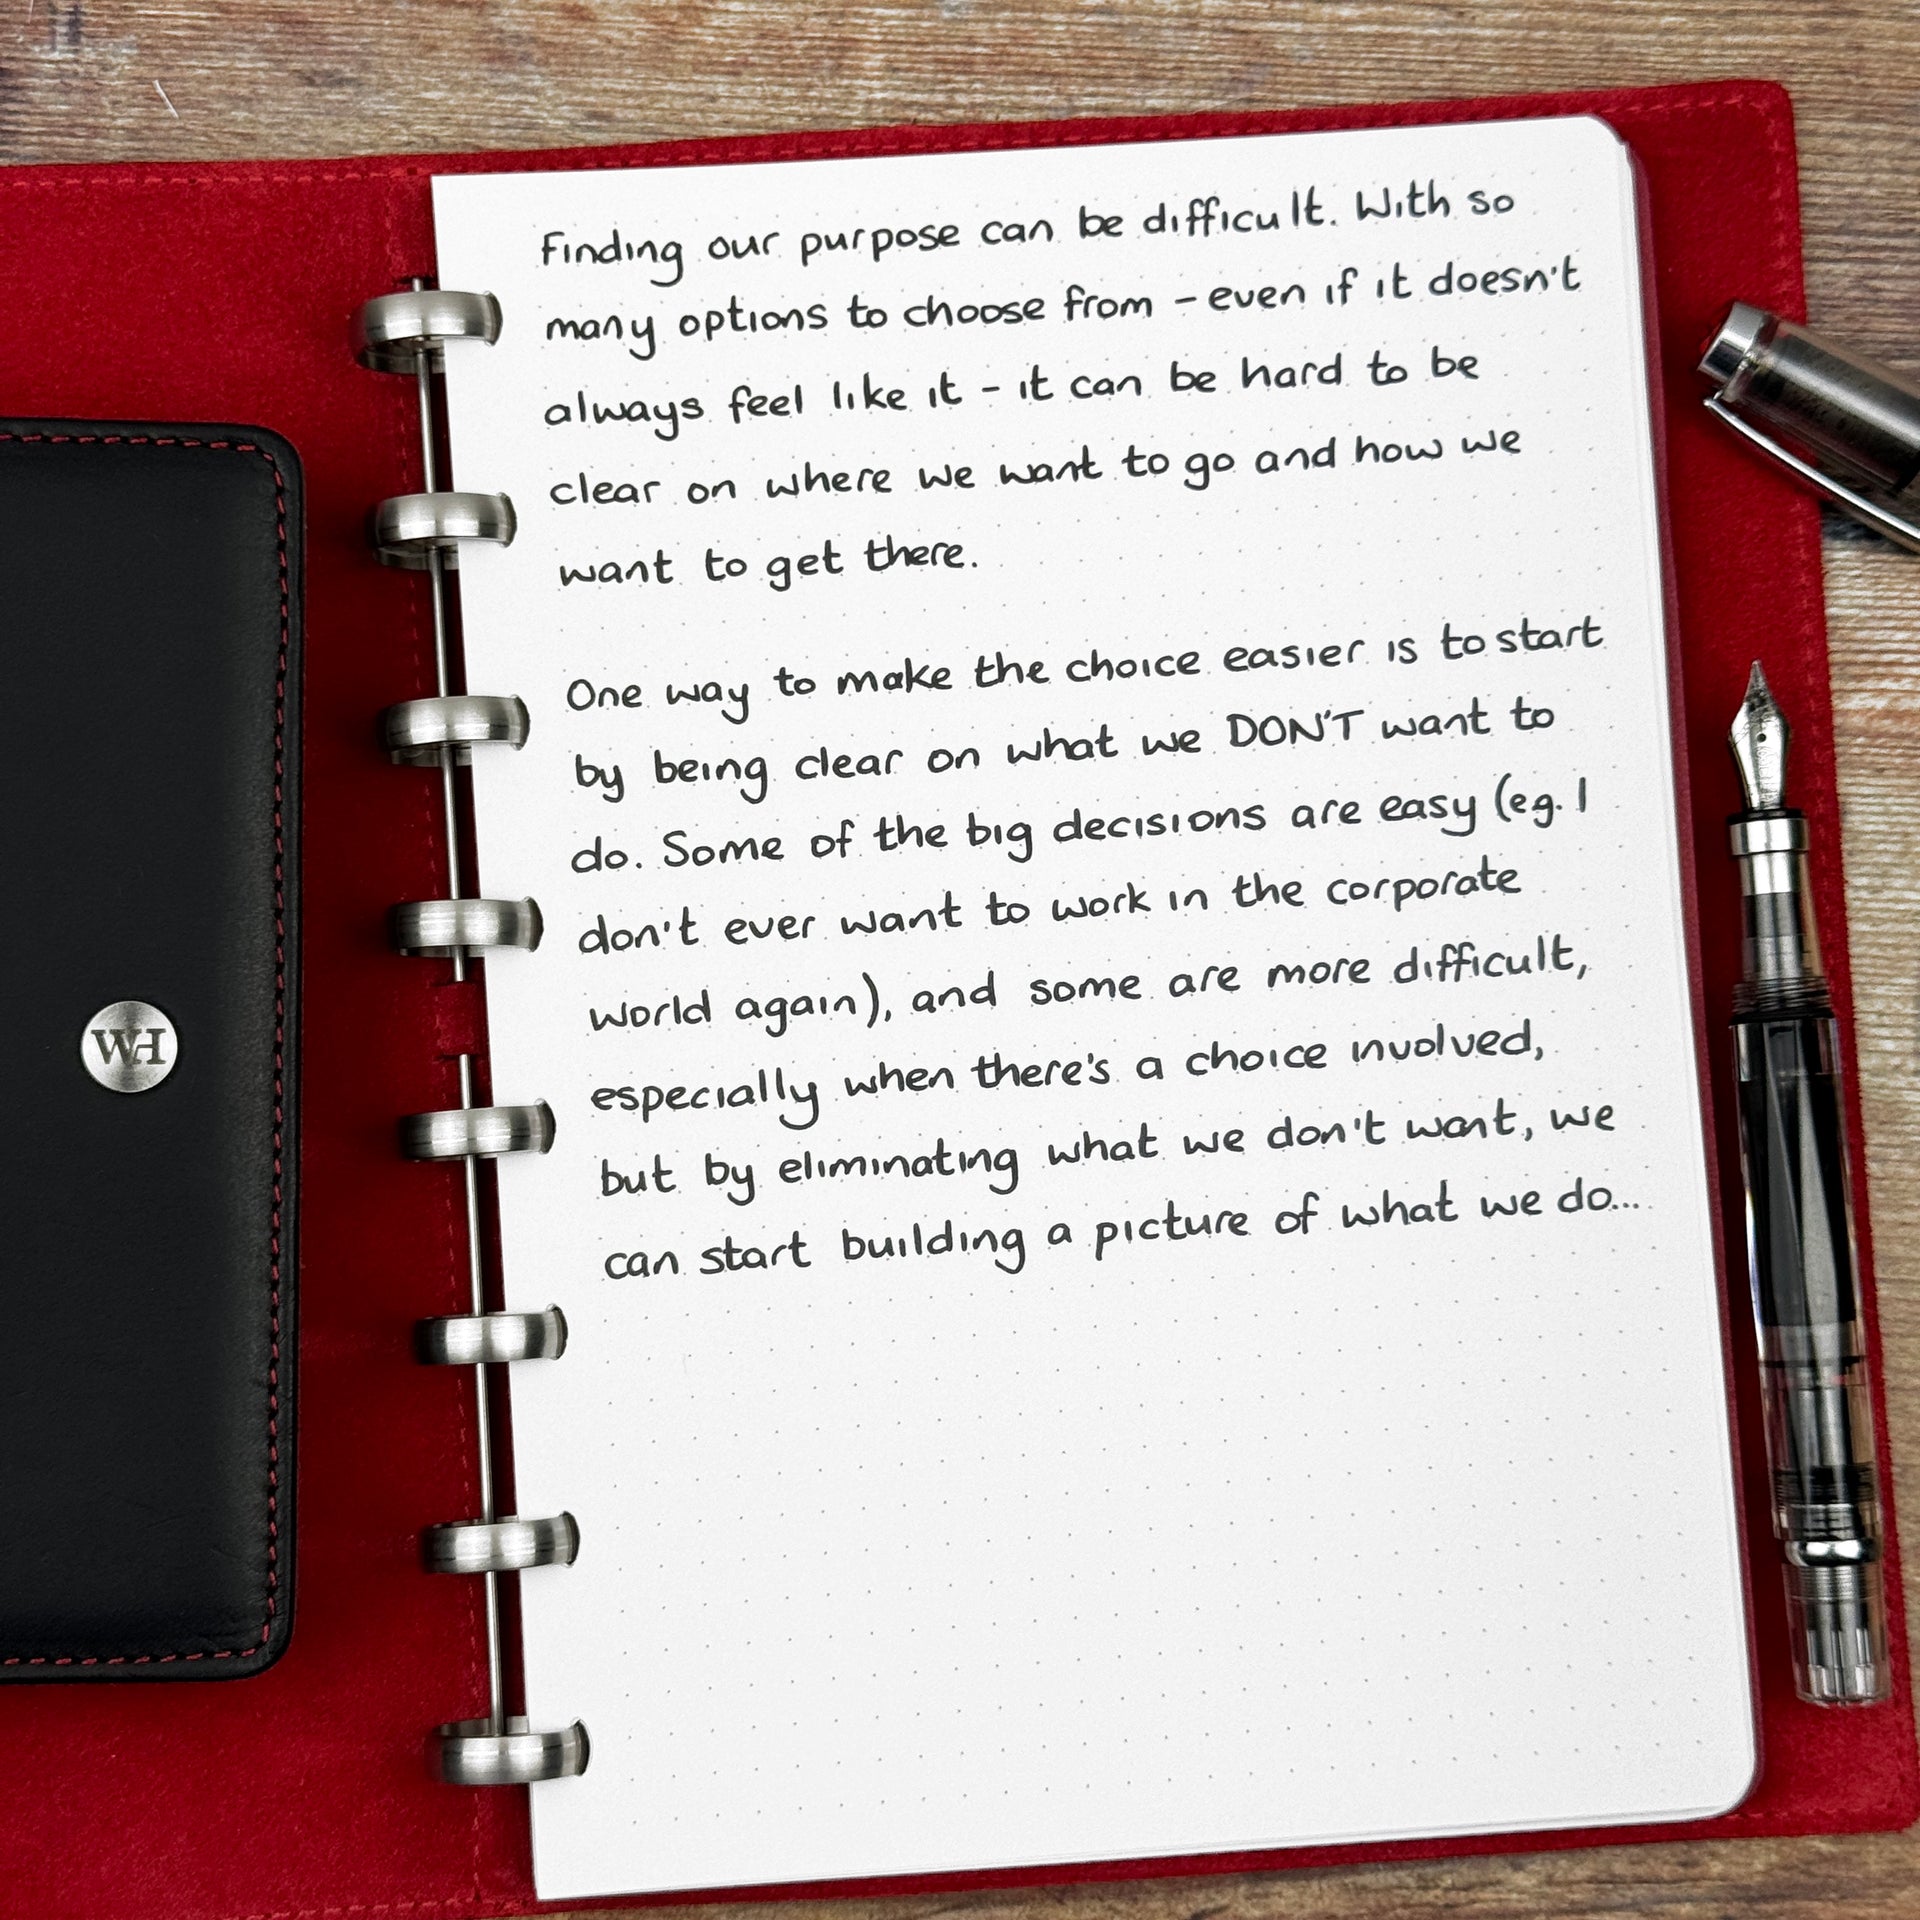 WH
Finding our purpose can be difficult. With so
many options to choose from - even if it doesn't
always feel like it - it can be hard to be
clear on where we want to go and how we
want to get there.
One way to make the choice easier is to start
by being clear on what we DON'T want to
do. Some of the big decisions are easy (eg. I
don't ever want to work in the corporate
world again), and some are more difficult,
especially when there's a choice involved,
but by eliminating what we don't want, we
can start building a picture of what we do...